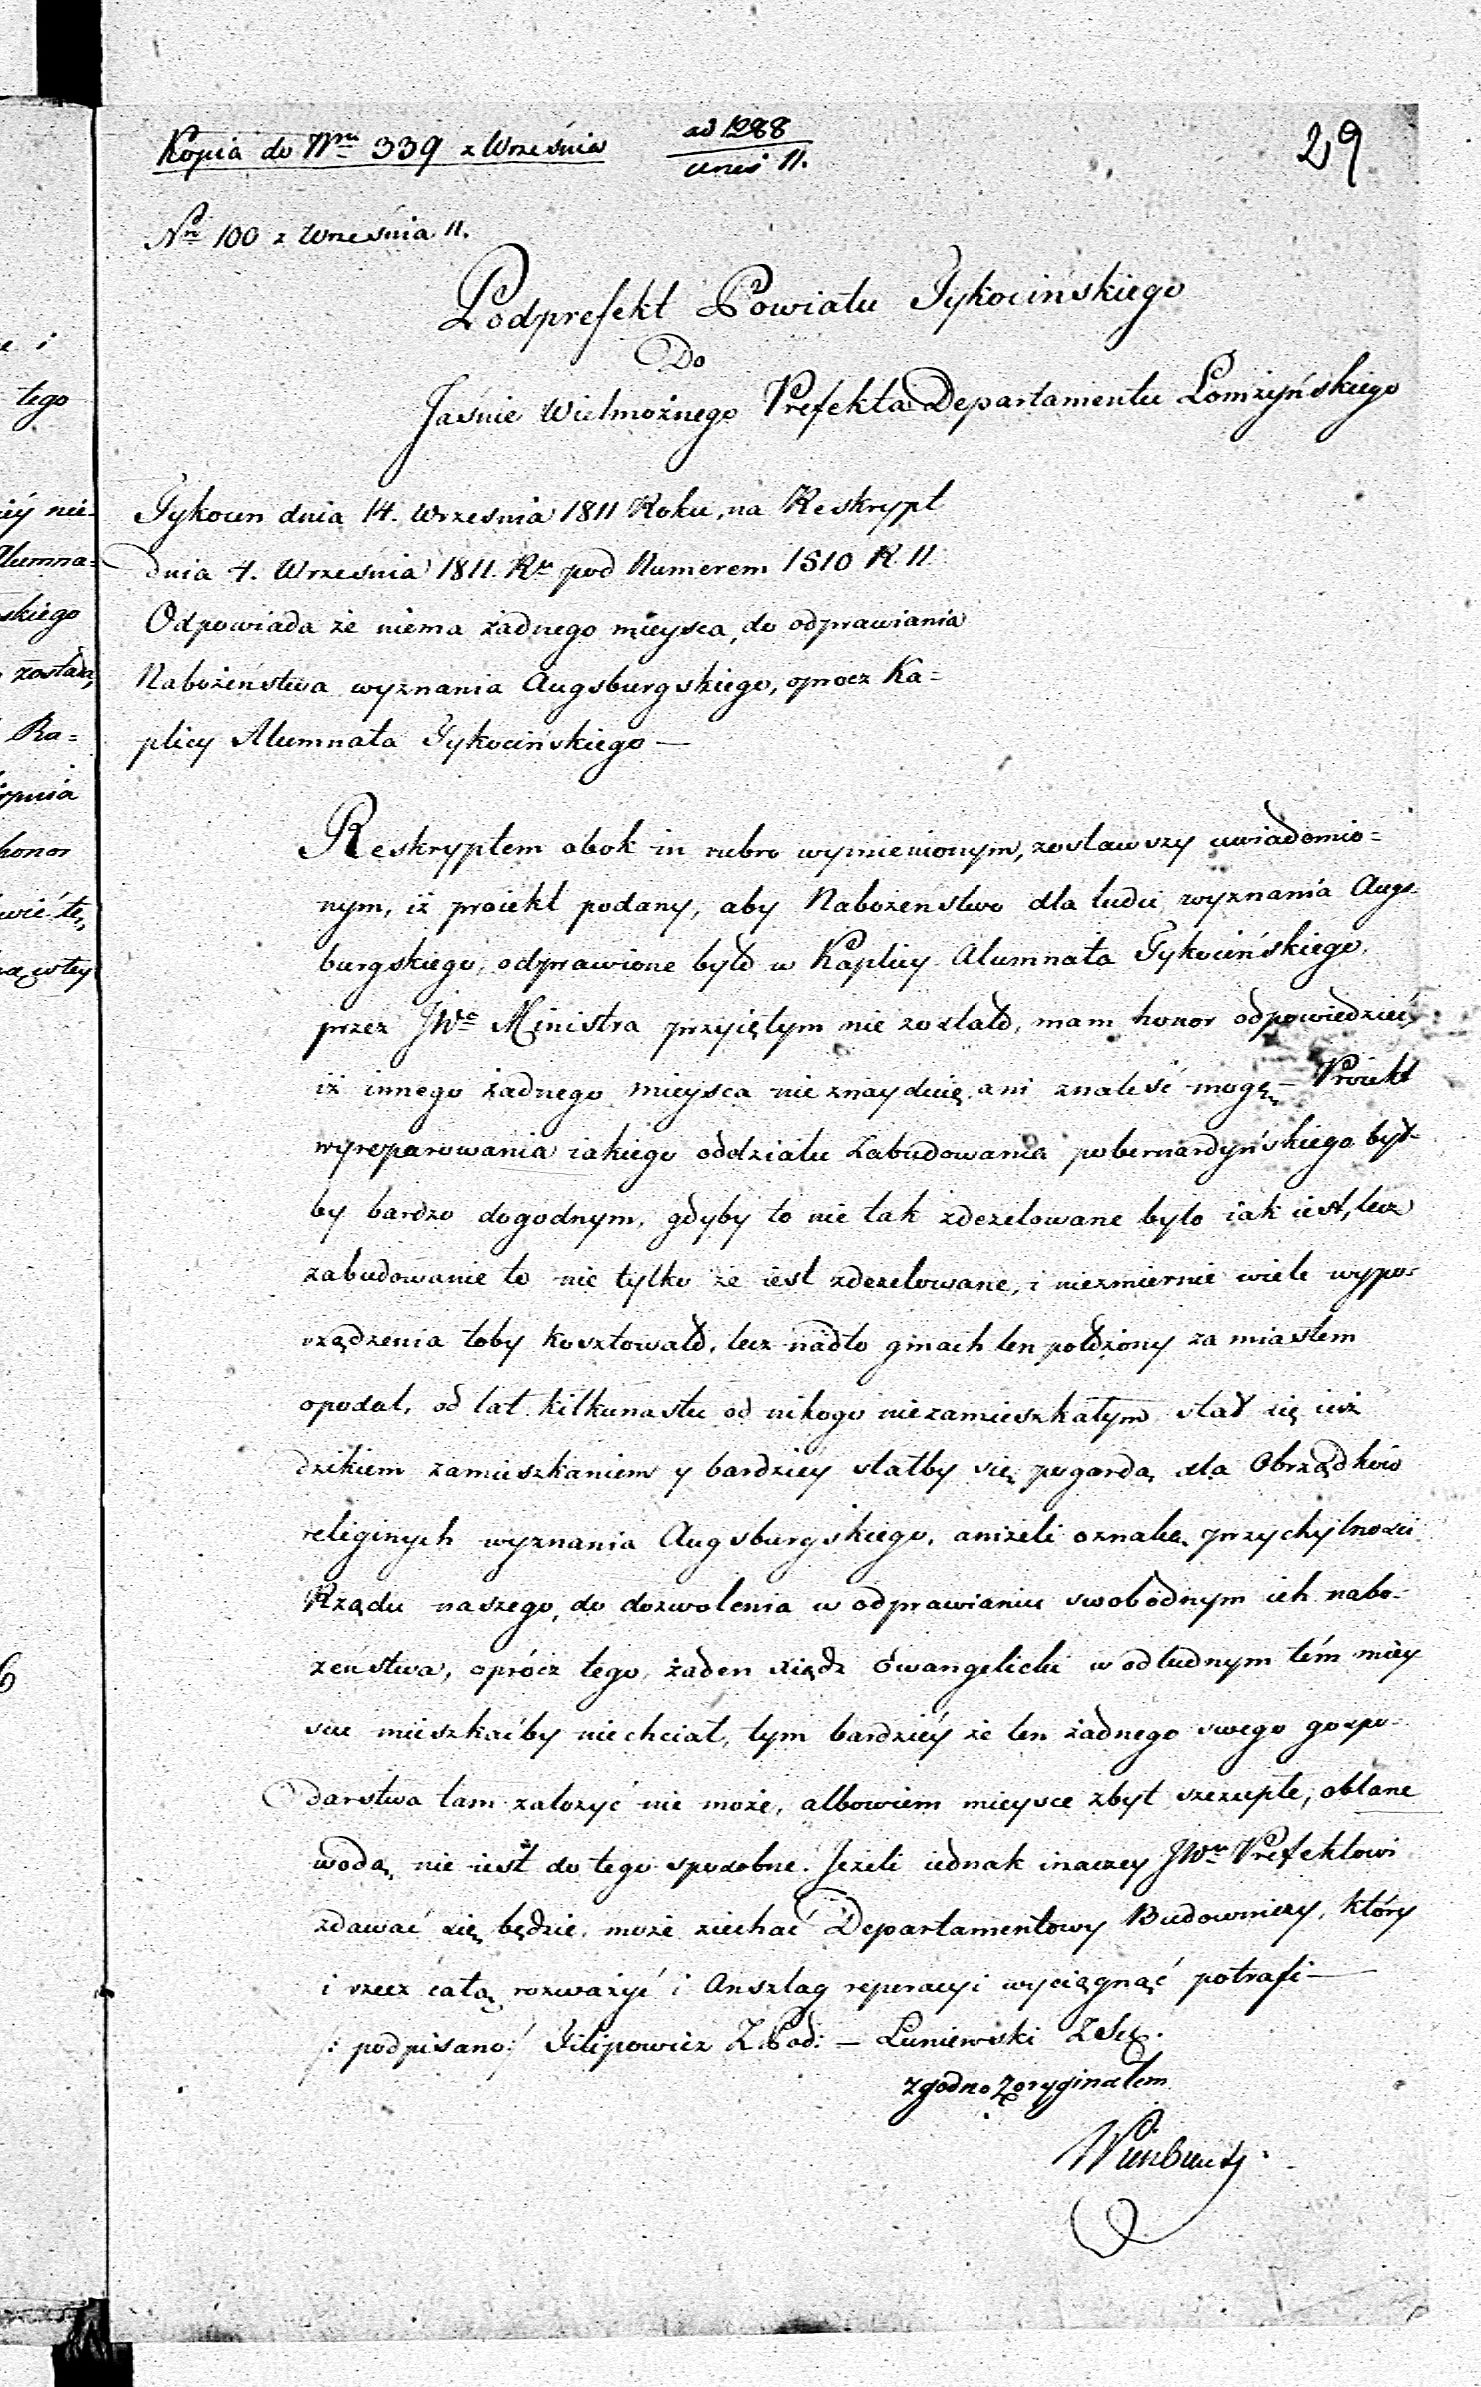 Kopia do Nru 339 z Września
ad 1288
anni 11.
29
Nro 100 z Września 11.
Podprefekt Powiatu Tykocinskiego
Do
Jaśnie Wielmożnego Prefekta Departamentu Łomżyńskiego
Tykocin dnia 14. Września 1811 Roku, na Reskrypt
dnia 4. Września 1811. Ru pod Numerem 1510 R. 11
Odpowiada że niema żadnego mieysca, do odprawiania
Nabożeństwa wyznania Augsburgskiego, oprocz Ka=
plicy Alumnata Tykocińskiego —
Reskryptem obok in rubro wymienionym, zostawszy uwiadomio=
nym, iż proiekt podany, aby Nabożenstwo dla ludu wyznania Augs-
burgskiego, odprawione było w Kaplicy Alumnata Tykocińskiego,
przez JWo Ministra przyiętym nie został, mam honor odpowiedzieć,
iż innego żadnego mieysca nie znayduię ani znaleść mogę — Proiekt
wyreparowania iakiego oddziału Zabudowania pobernardyńskiego był-
by bardzo dogodnym, gdyby to nie tak zdezelowane było iak iest, lecz
zabudowanie to nie tylko że iest zdezelowane, i niezmiernie wiele wypo-
rządzenia toby kosztowało, lecz nadto gmach ten położony za miastem
opodal, od lat kilkunastu od nikogo niezamieszkałym stał się iuż
dzikiem zamieszkaniem y bardziey stałby się pogardą dla Obrządków
religinych wyznania Augsburgskiego, aniżeli oznaką przychylności
Rządu naszego, do dozwolenia w odprawianiu swobodnym ich nabo-
żeństwa, oprócz tego, żaden xiądz ewangelicki w odludnym tém miey
scu mieszkaćby niechciał, tym bardziéy że ten żadnego swego gospo-
darstwa tam założyć nie może, albowiem mieysce zbyt szczupłe, oblane
wodą, nie iest do tego sposobne. Jeżeli iednak inaczey JWu Prefektowi
zdawać się będzie, może ziechać Departamentowy Budowniczy, który
i rzecz całą rozważyć i Anszlag reperacyi wyciągnąć potrafi —
/: podpisano :/ Filipowicz Z. Pod: — Łuniewski Z Sę.
zgodno z oryginałem